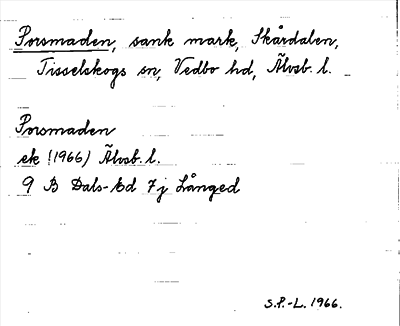 Porsmaden, sank mark, Skårdalen,
Tisselskogs sn, Vedbo hd, Älvsb. l.
Porsmaden
ek (1966) Älvsb. l.
9 B Dals-Ed 7j Långed
S.P.-L. 1966.